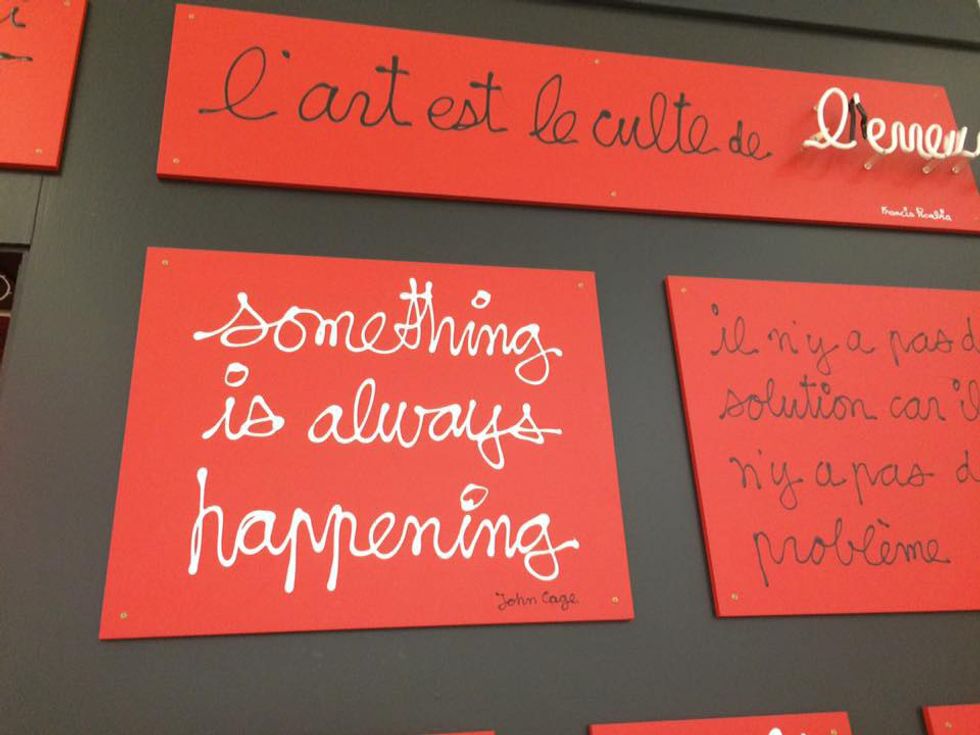 l'art est le culte de l'erreu
Francis Picabia
something
is always
happening
John Cage
il n'y a pas d
solution car il
n'y a pas d
problème